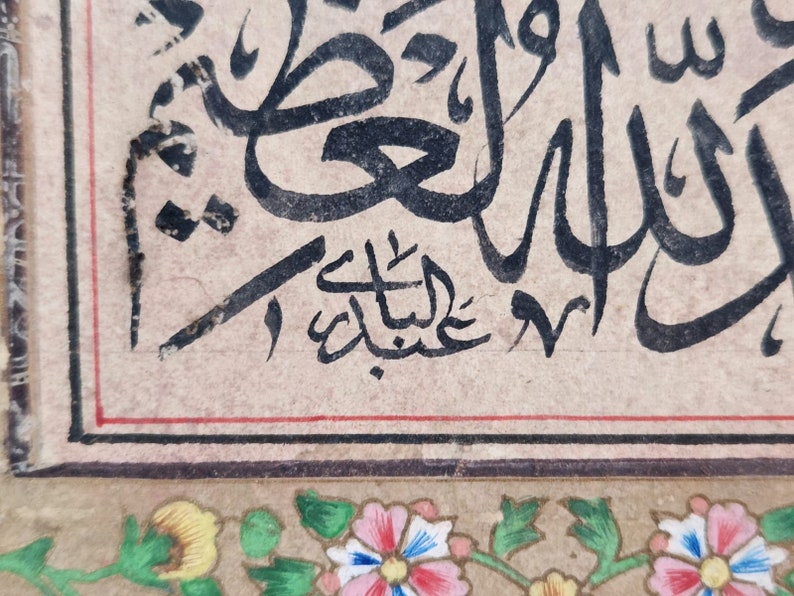 الله العظيم
عبد الباري